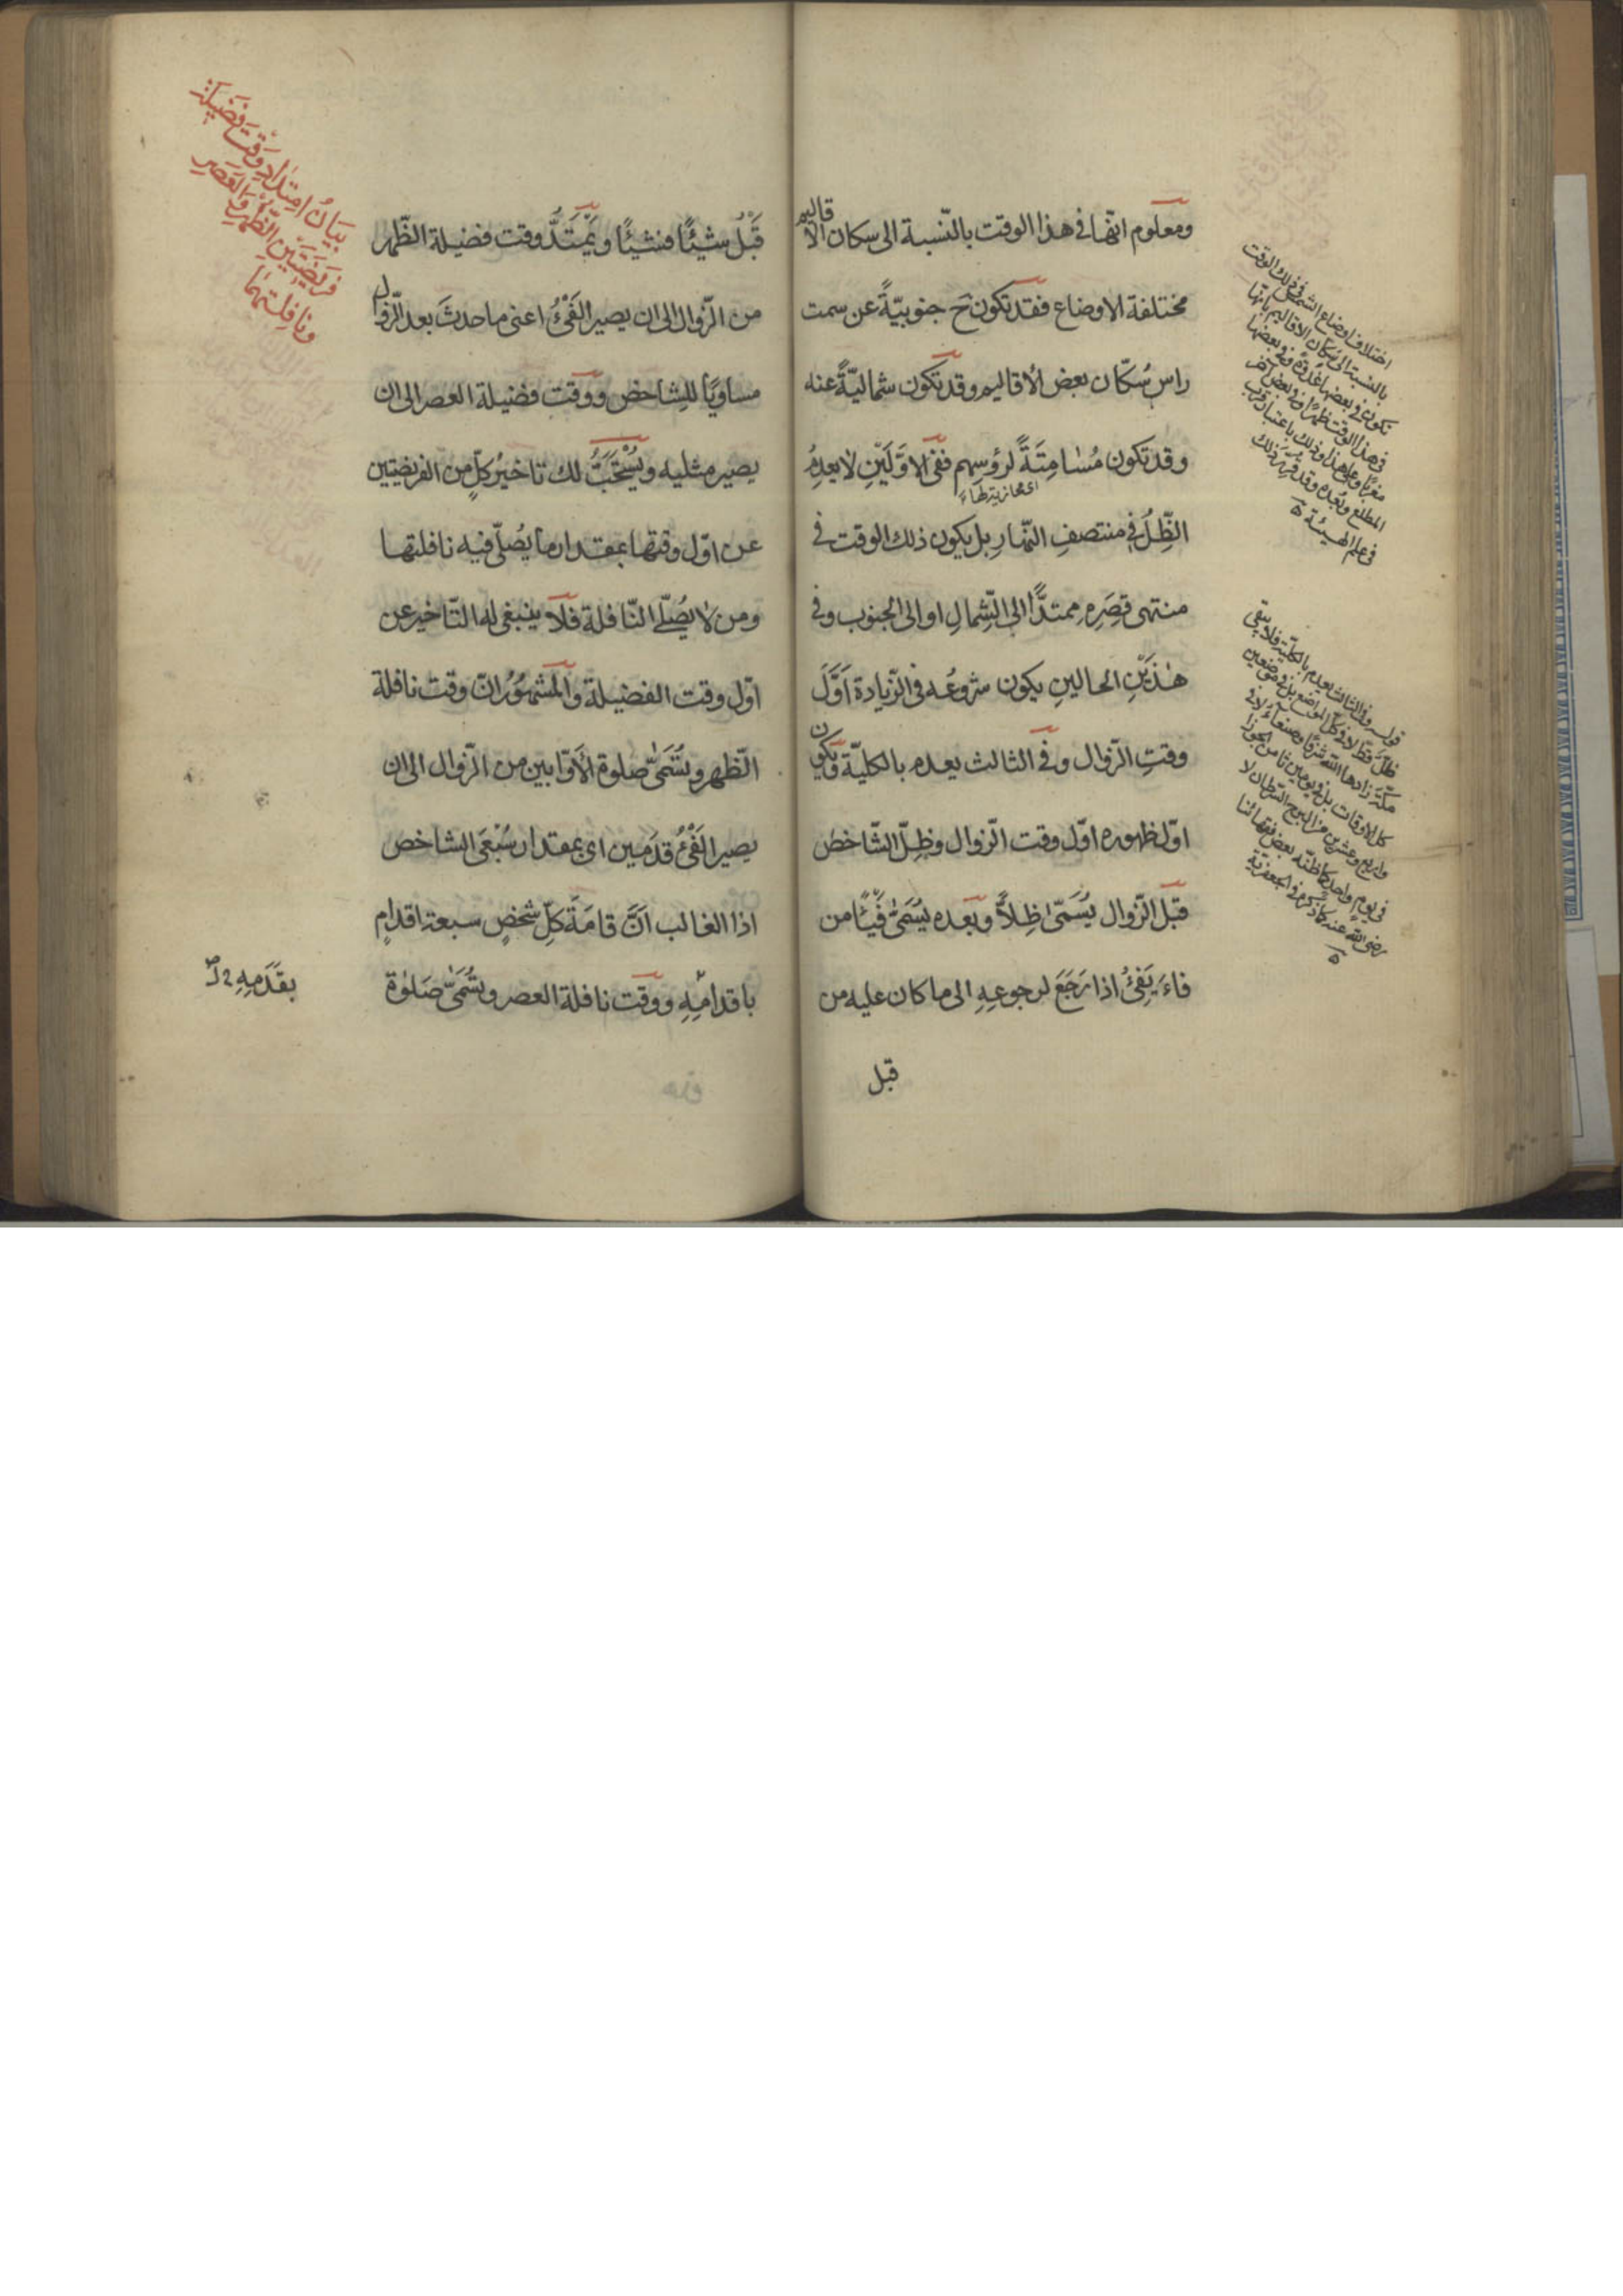 ومعلوم انّها فى هذا الوقت بالنّسبة الى سكان الاقاليم
مختلفة الاوضاع فقد تكون ح جنوبيّةً عن سمت
راسِ سُكّان بعض الاقاليم وقد تكون شماليّةً عنه
وقد تكون مُسٰامِتَةً لرؤسهم ففى الاوَّلَيْنِ لا يعدمُ
اى محازية لها
الظِّلُّ فى منتصفِ النّهارِ بل يكون ذلك الوقت فى
منتهى قِصَرِهِ ممتدًّا الى الشّمالِ او الى الجنوب وفى
هٰذَيْنِ الحالينِ يكون شروعُه فى الزّيادة اَوَّلَ
وقتِ الزّوال وفى الثالث يعدم بالكليّة ويكون
اوّل ظهوره اوّل وقت الزوال وظِلّ الشّاخص
قبل الزّوال يُسَمّىٰ ظِلاًّ وبعده يُسَمّىٰ فَيْئًا من
فاءَ يَفِئُ اذا رَجَعَ لرجوعِهِ الى ما كان عليه من
قبل
اختلاف اوضاع الشمس فى ذلك الوقت
بالنسبة الى سكان الاقاليم بانها
تكون فى بعضها غدوة وفى بعضها
فى هذا الوقت ظهرا وفى بعض آخر
مغربا وعلى هذا وذلك باعتبار قرب
المطلع وبُعده وقد قُرِّر ذلك
فى علم الهيئة
قوله وفى الثالث يعدم بالكليّة فلا يبقى
ظلّ قطّ لا فى كلّ المواضع بل فى موضعين
مكّة زادها اللّٰه شرفًا وصنعاء لا فى
كل الاوقات بل فى يومين ثامن الجوزا
وثالث وعشرين من البرج السرطان لا
فى يوم واحد كما ظنّه بعض فقهائنا
رضى اللّٰه عنه كما ذكره فى الجعفريّة
قَبْلُ شيْئًا فشيْئًا ويَمْتَدُّ وقت فضيلة الظّهر
من الزّوال الى ان يصير الفَىْءُ اعنى ما حدثَ بعد الزّوال
مساويًا للشاخص ووقت فضيلة العصر الى ان
يصير مثليه ويُسْتَحَبُّ لك تاخيرُ كلّ من الفريضتين
عن اوّل وقتها بمقدار ما يُصلّى فيه نافلتها
ومن لا يُصَلّى النّافلة فلا ينبغى له التّاخير عن
اوّل وقت الفضيلة والمشهُورُ انّ وقت نافلة
الظّهر وتُسَمّىٰ صلوة الأوّابين من الزّوال الى ان
يصير الفَىْءُ قدَمين اى بمقدار سُبْعَى الشاخص
اذا الغالب اَنَّ قامَةَ كلِّ شخصٍ سبعة اقدامٍ
باقدامِهِ ووقت نافلة العصر وتُسَمّىٰ صَلوٰة
بيَانُ امتِدادِ وقتِ فَضيلة
فَريضَتَيْنِ الظُّهرِ وَالعَصرِ
وَنافِلتهمَا
بقَدَمِهِ